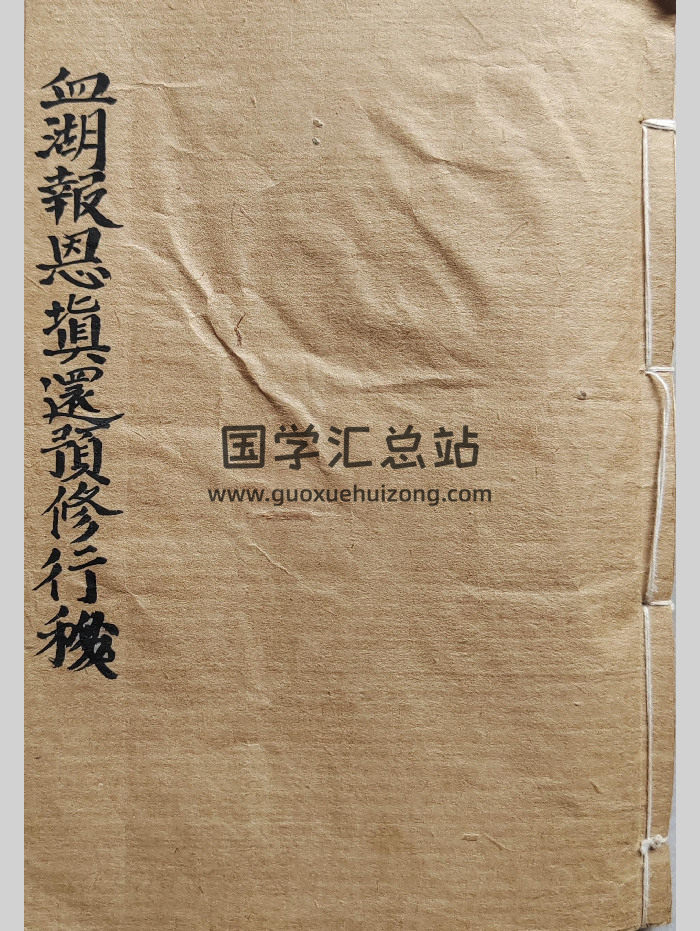 血湖報恩填還預修行移
国学汇总站
www.guoxuehuizong.com